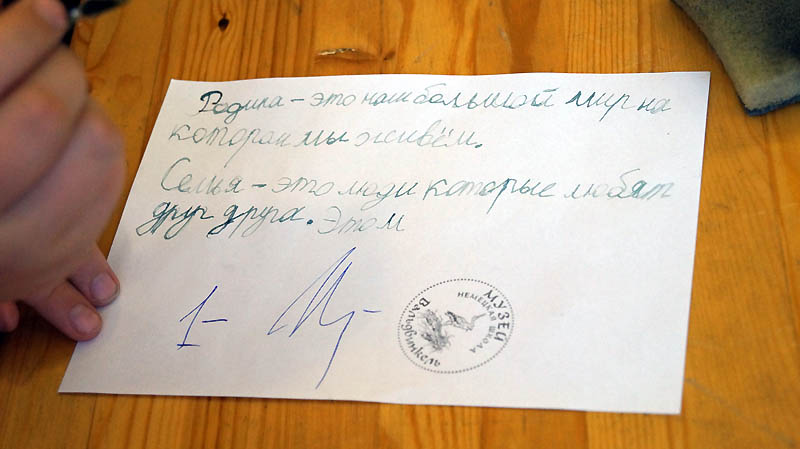 Родина – это наш большой мир на
которай мы живём.
Семья – это люди которые любят
друг друга. Этом
1–
МУЗЕЙ
НЕМЕЦКАЯ ШКОЛА
Вальдвинкель